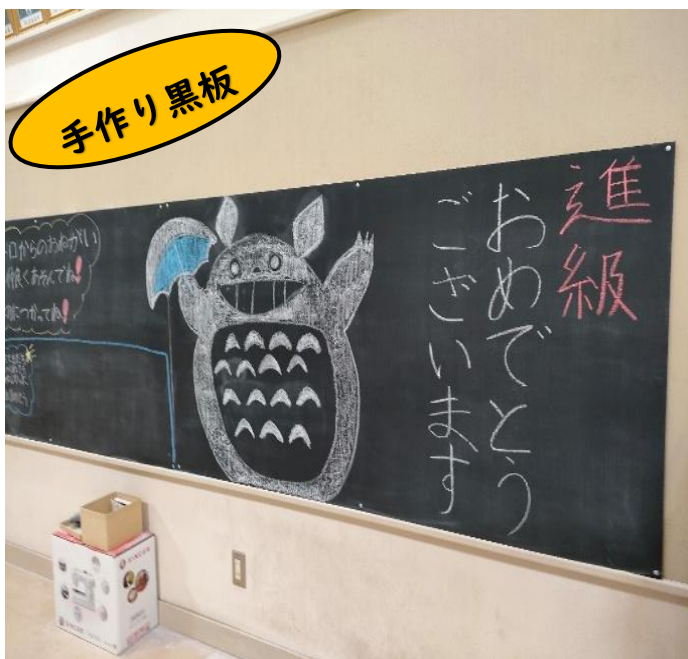 手作り黒板
進級
おめでとう
ございます
口からのおねがい
仲良くあそんでね!
につかってね!
SINGER